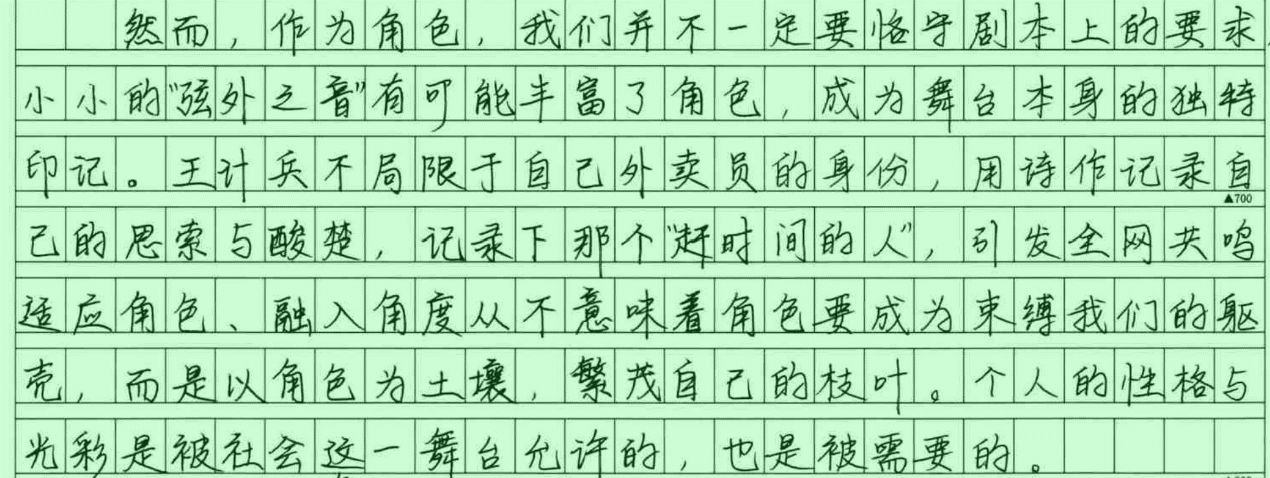 然而，作为角色，我们并不一定要恪守剧本上的要求，
小小的“弦外之音”有可能丰富了角色，成为舞台本身的独特
印记。王计兵不局限于自己外卖员的身份，用诗作记录自
▲700
己的思索与酸楚，记录下那个“赶时间的人”，引发全网共鸣
适应角色、融入角度从不意味着角色要成为束缚我们的躯
壳，而是以角色为土壤，繁茂自己的枝叶。个人的性格与
光彩是被社会这一舞台允许的，也是被需要的。